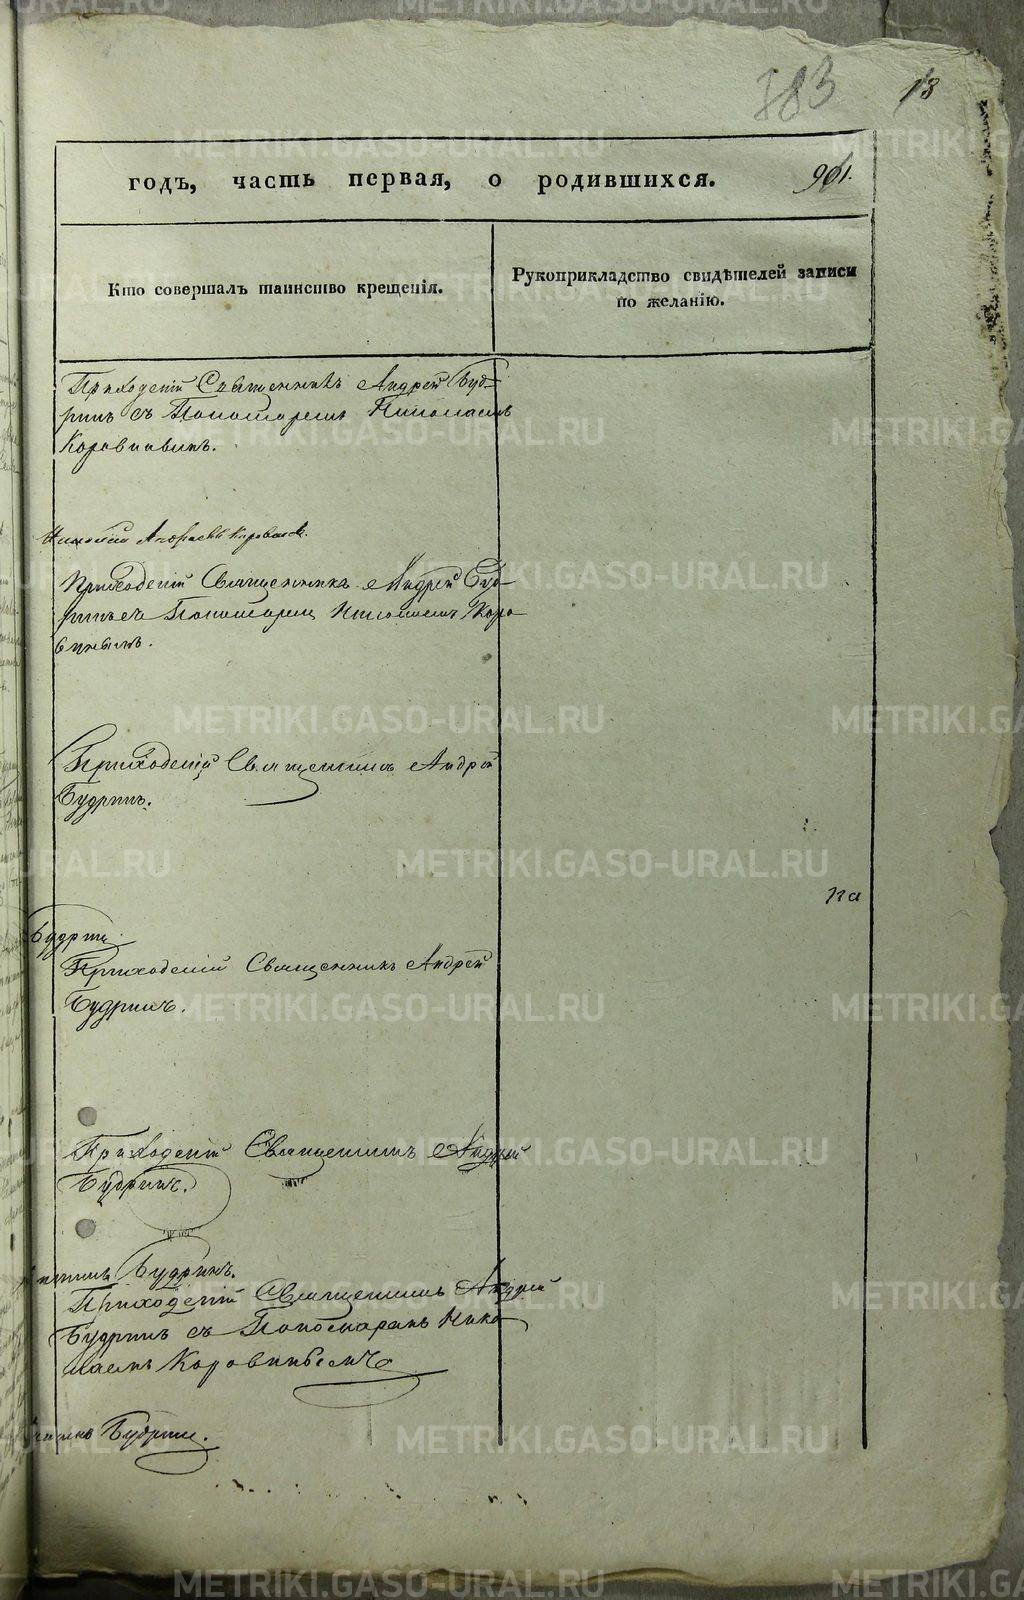 783 13
годъ, часть первая, о родившихся. 961.
Кто совершалъ таинство крещенія.
Рукоприкладство свидѣтелей записи
по желанію.
Приходскій Священникъ Андрей Буд-
ринъ съ Пономаремъ Николаемъ
Коровинымъ.
Николай Коровинъ.
Приходскій Священникъ Андрей Буд-
ринъ съ Пономаремъ Николаемъ Коро-
винымъ.
Приходскій Священникъ Андрей
Будринъ.
на
Будринъ.
Приходскій Священникъ Андрей
Будринъ.
Приходскій Священникъ Андрей
Будринъ.
Будринъ.
Приходскій Священникъ Андрей
Будринъ съ Пономаремъ Нико-
лаемъ Коровинымъ
Будринъ.
METRIKI.GASO-URAL.RU